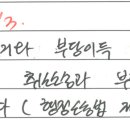 3.
거와 부당이득
취소소송과 부
다 (행정소송법 제